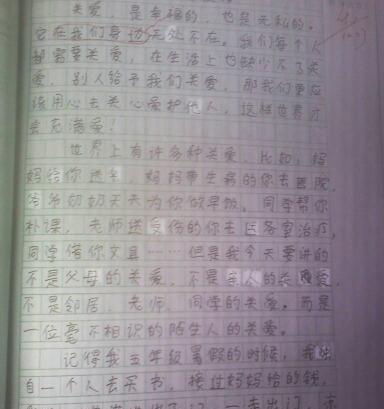 关爱，是幸福的，也是无私的。
它在我们身边无处不在。我们每个人
都需要关爱，在生活上也缺少不了关
爱，别人给予我们关爱，那我们更应
该用心去关心爱护他人，这样世界才
会充满爱！
世界上有许多种关爱，比如，妈
妈给你送伞，妈妈带生病的你去医院，
爷爷奶奶天天为你做早饭。同学帮你
补课，老师送受伤的你去医务室治疗，
同学借你文具……但是我今天要讲的
不是父母的关爱，不是亲人的关爱，
不是邻居、老师、同学的关爱。而是
一位毫不相识的陌生人的关爱。
记得我五年级暑假的时候，我独
自一个人去买书，接过妈妈给的钱，
一走出门